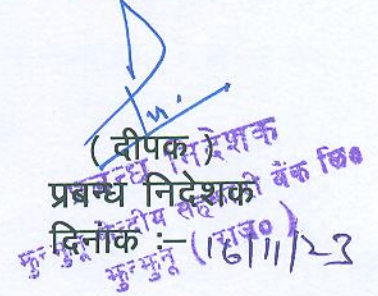 ( दीपक )
प्रबन्ध निदेशक
दिनांक :– 16/11/23
प्रबन्ध निदेशक
झुन्झुनू केन्द्रीय सहकारी बैंक लि०
झुन्झुनू (राज०)